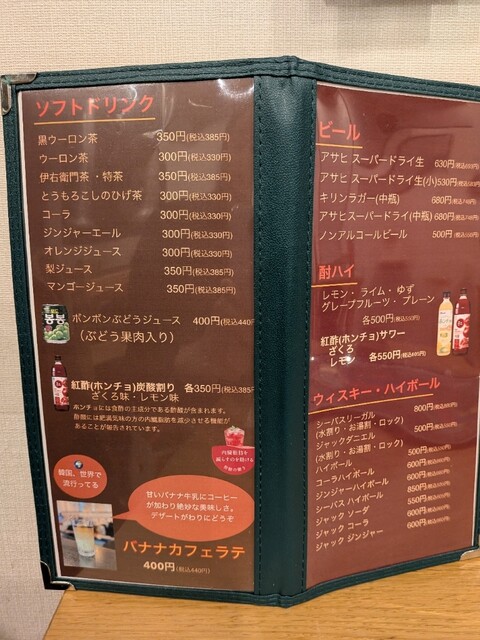 ソフトドリンク
黒ウーロン茶 350円(税込385円)
ウーロン茶 300円(税込330円)
伊右衛門茶・特茶 350円(税込385円)
とうもろこしのひげ茶 300円(税込330円)
コーラ 300円(税込330円)
ジンジャーエール 300円(税込330円)
オレンジジュース 300円(税込330円)
梨ジュース 350円(税込385円)
マンゴージュース 350円(税込385円)
봉봉
ボンボンぶどうジュース 400円(税込440円
(ぶどう果肉入り)
紅酢(ホンチョ)炭酸割り 各350円(税込385円
ざくろ味・レモン味
ホンチョには食酢の主成分である酢酸が含まれます。
酢酸には肥満気味の方の内臓脂肪を減少させる機能が
あることが報告されています。
内臓脂肪を
減らすのを助ける
韓国、世界で
流行ってる
甘いバナナ牛乳にコーヒー
が加わり絶妙な美味しさ。
デザートがわりにどうぞ
バナナカフェラテ
400円(税込440円)
ビール
アサヒ スーパードライ生 630円
アサヒ スーパードライ生(小)530円
キリンラガー(中瓶) 680円
アサヒスーパードライ(中瓶) 680円
ノンアルコールビール 500円
酎ハイ
レモン・ライム・ゆず
グレープフルーツ・プレーン
各500円
紅酢(ホンチョ)サワー
ざくろ
レモン 各550円
ウィスキー・ハイボール
シーバスリーガル 800円
(水割り・お湯割・ロック)
ジャックダニエル 500円
(水割り・お湯割・ロック)
ハイボール 500円
コーラハイボール 600円
ジンジャーハイボール 600円
シーバス ハイボール 850円
ジャック ソーダ 550円
ジャック コーラ 600円
ジャック ジンジャー 600円